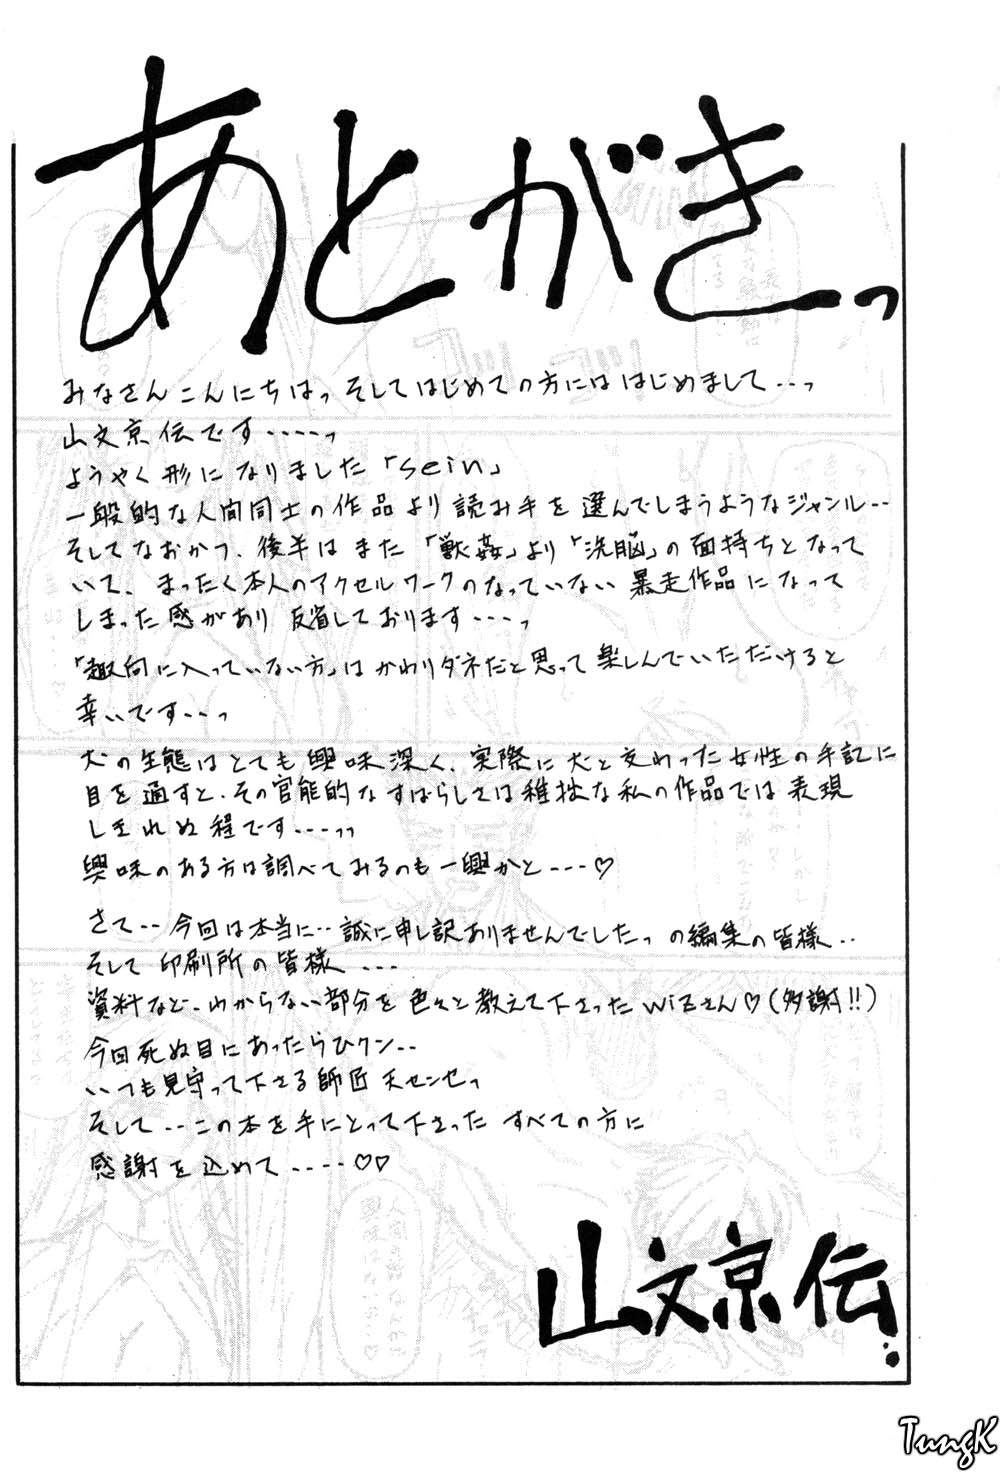 あとがきっ
みなさんこんにちはっ そしてはじめての方にははじめまして…っ
山文京伝です‥‥っ
ようやく形になりました「sein」
一般的な人間同士の作品より読み手を選んでしまうようなジャンル‥
そしてなおかつ、後半はまた「獣姦」より「洗脳」の面持ちとなって
いて、まったく本人のアクセルワークのなっていない暴走作品になって
しまった感があり 反省しております‥‥っ
「趣向に入っていない方」はかわりダネだと思って楽しんでいただけると
幸いです‥‥っ
犬の生態はとても興味深く、実際に犬と交わった女性の手記に
目を通すと、その官能的なすばらしさは稚拙な私の作品では表現
しきれぬ程です‥‥っっ
興味のある方は調べてみるのも一興かと‥‥♡
さて‥今回は本当に‥誠に申し訳ありませんでしたっの編集の皆様‥
そして印刷所の皆様‥‥
資料など、わからない部分を色々と教えて下さったWiZさん♡(多謝!!)
今回死ぬ目にあったらひクン‥
いつも見守って下さる師匠 天センセっ
そして‥この本を手にとって下さった すべての方に
感謝を込めて‥‥♡♡
山文京伝
TungK